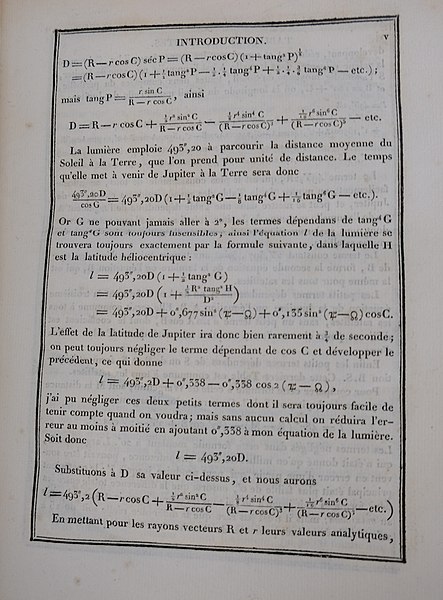 INTRODUCTION. v
D = (R — r cos C) séc P = (R — r cos C) (1 + tang² P)^½
= (R — r cos C) (1 + ½ tang² P — ½ . ¼ tang⁴ P + ½ . ¼ . ¾ tang⁶ P — etc.) ;
mais tang P = r sin C / R — r cos C, ainsi
D = R — r cos C + ½ r² sin² C / R — r cos C — ⅛ r⁴ sin⁴ C / (R — r cos C)³ + 1/16 r⁶ sin⁶ C / (R — r cos C)⁵ — etc.
La lumière emploie 493″,20 à parcourir la distance moyenne du
Soleil à la Terre, que l'on prend pour unité de distance. Le temps
qu'elle met à venir de Jupiter à la Terre sera donc
493″,20D / cos G = 493″,20D (1 + ½ tang² G — ⅛ tang⁴ G + 1/16 tang⁶ G — etc.).
Or G ne pouvant jamais aller à 2°, les termes dépendans de tang⁴ G
et tang⁶ G sont toujours insensibles; ainsi l'équation l de la lumière se
trouvera toujours exactement par la formule suivante, dans laquelle H
est la latitude héliocentrique :
l = 493″,20D (1 + ½ tang² G)
= 493″,20D (1 + ½ R² tang² H / D²)
= 493″,20D + 0″,677 sin² (♃ — ☊) + 0″,135 sin² (♃ — ☊) cos C.
L'effet de la latitude de Jupiter ira donc bien rarement à ¾ de seconde;
on peut toujours négliger le terme dépendant de cos C et développer le
précédent, ce qui donne
l = 493″,2D + 0″,338 — 0″,338 cos 2 (♃ — ☊),
j'ai pu négliger ces deux petits termes dont il sera toujours facile de
tenir compte quand on voudra; mais sans aucun calcul on réduira l'er-
reur au moins à moitié en ajoutant 0″,338 à mon équation de la lumière.
Soit donc
l = 493″,20D.
Substituons à D sa valeur ci-dessus, et nous aurons
l = 493″,2 (R — r cos C + ½ r² sin² C / R — r cos C — ⅛ r⁴ sin⁴ C / (R — r cos C)³ + 1/16 r⁶ sin⁶ C / (R — r cos C)⁵ — etc.)
En mettant pour les rayons vecteurs R et r leurs valeurs analytiques,